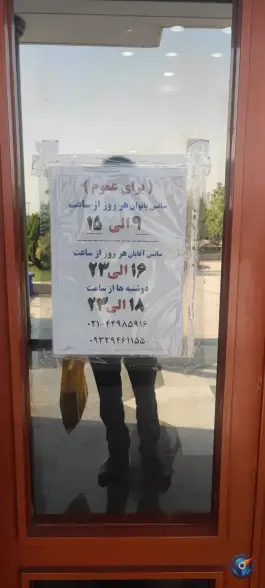 ( برای عموم )
سانس بانوان هر روز از ساعت
۹ الی ۱۵
سانس آقایان هر روز از ساعت
۱۶ الی ۲۳
دوشنبه ها از ساعت
۱۸ الی ۲۳
۰۲۱-۴۴۹۸۵۹۱۶
۰۹۳۳۹۴۶۱۱۵۵